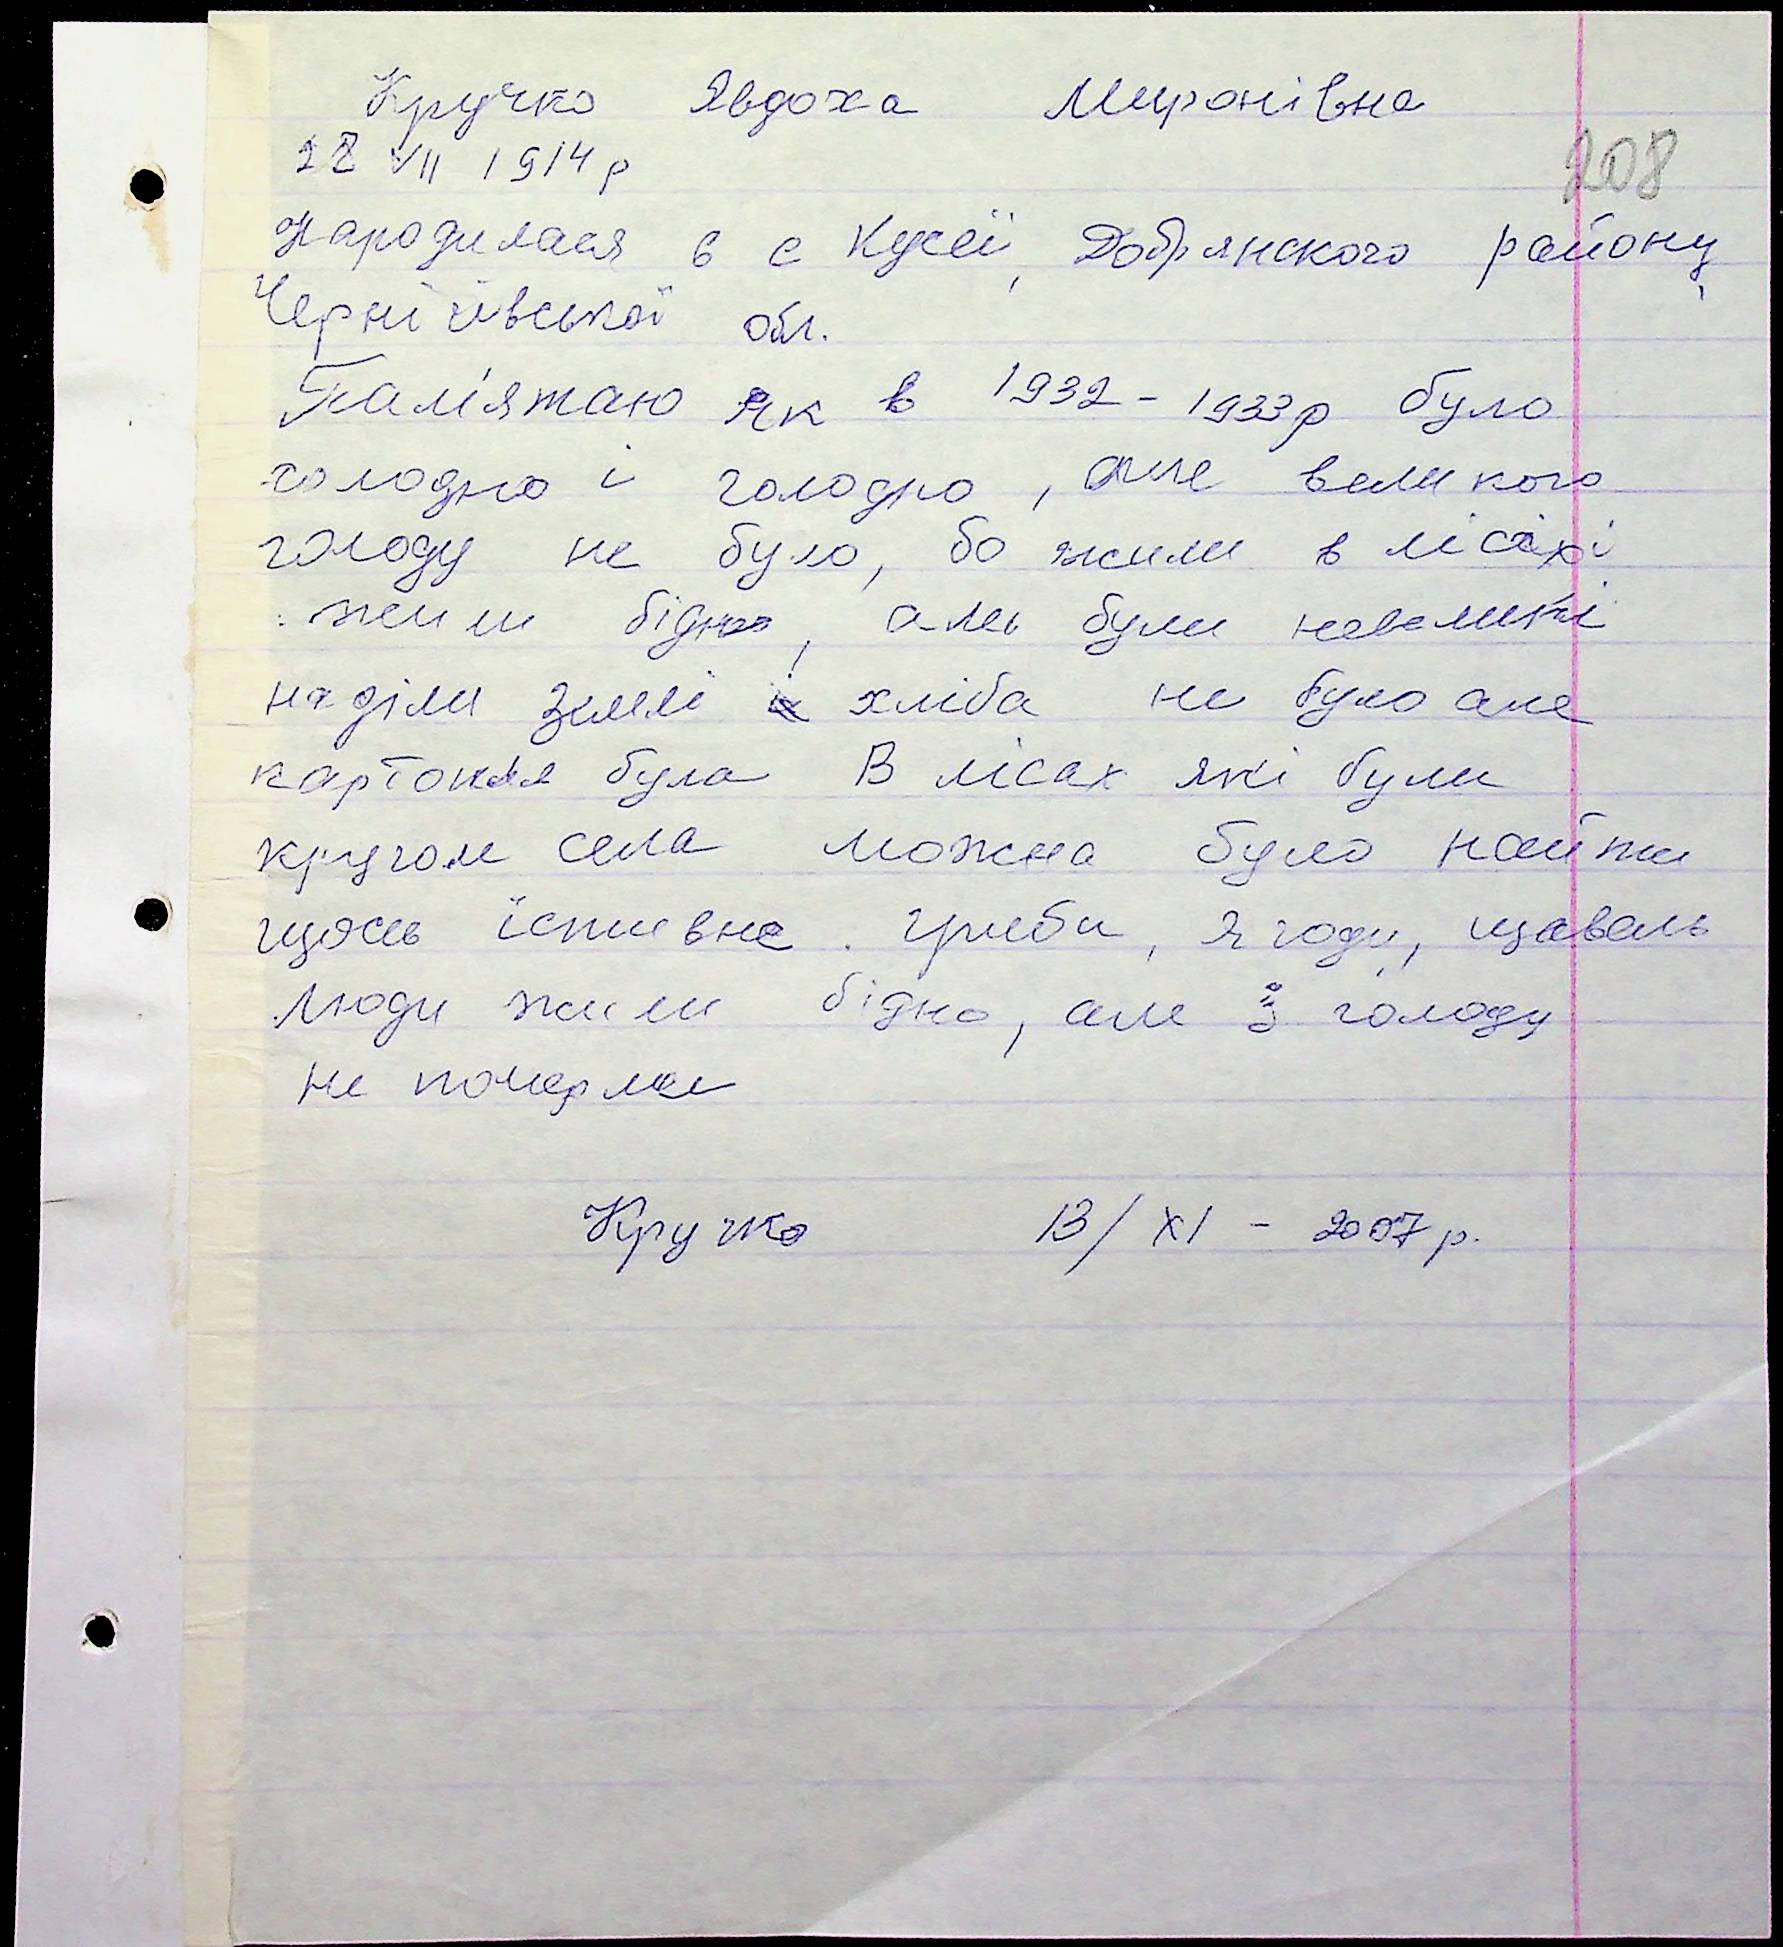 Кручко Явдоха Миронівна
28 VII 1914 р
208
Народилася в с Кусеї, Добрянского району,
Чернігівської обл.
Памʼятаю як в 1932-1933р було
голодно і голодно, але великого
голоду не було, бо жили в лісах і
жили бідно, алеь були невеликі
наділи землі хліба не було але
картопля була В лісах які були
кругом села можна було найти
щось їстивне. гриби, ягоди, щавель
Люди жили бідно, але з голоду
не померли
Кручко 13/XI - 2007 р.